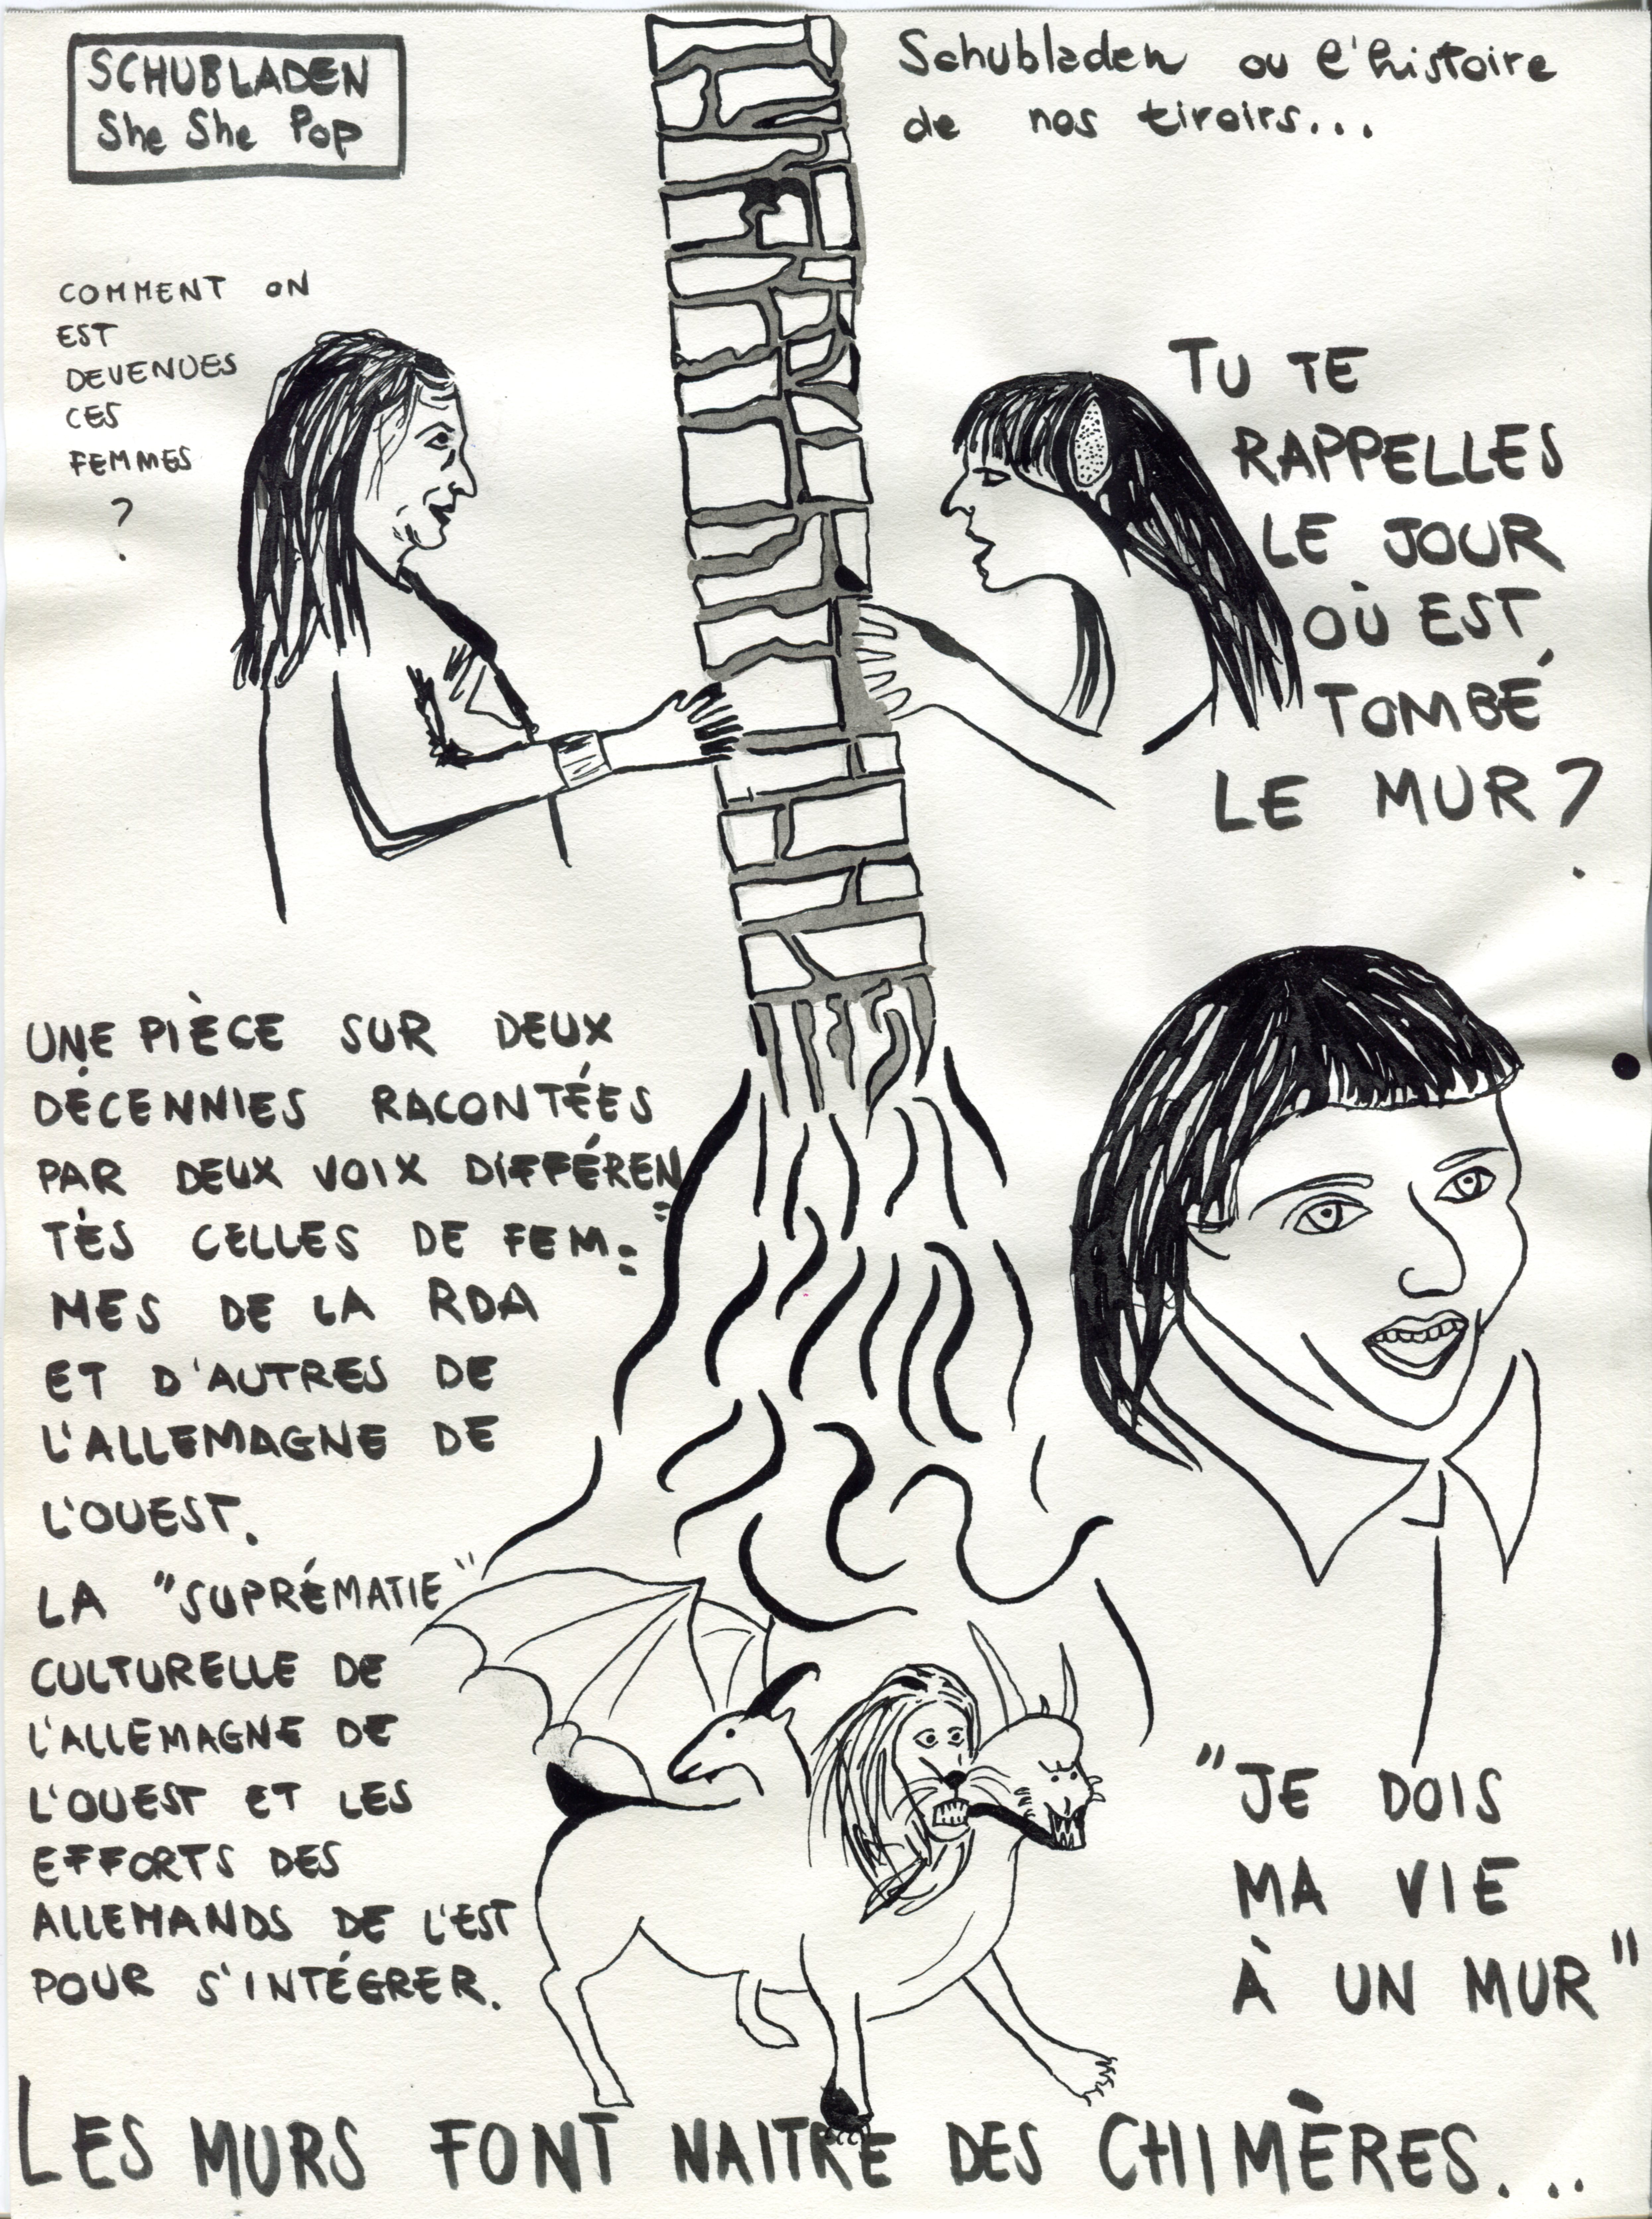 SCHUBLADEN
She She Pop
Schubladen ou l'histoire
de nos tiroirs...
COMMENT ON
EST
DEVENUES
CES
FEMMES
?
TU TE
RAPPELLES
LE JOUR
OÙ EST
TOMBÉ
LE MUR ?
UNE PIÈCE SUR DEUX
DÉCENNIES RACONTÉES
PAR DEUX VOIX DIFFÉREN=
TES CELLES DE FEM=
MES DE LA RDA
ET D'AUTRES DE
L'ALLEMAGNE DE
L'OUEST.
LA "SUPRÉMATIE"
CULTURELLE DE
L'ALLEMAGNE DE
L'OUEST ET LES
EFFORTS DES
ALLEMANDS DE L'EST
POUR S'INTÉGRER.
"JE DOIS
MA VIE
À UN MUR"
LES MURS FONT NAITRE DES CHIMÈRES...